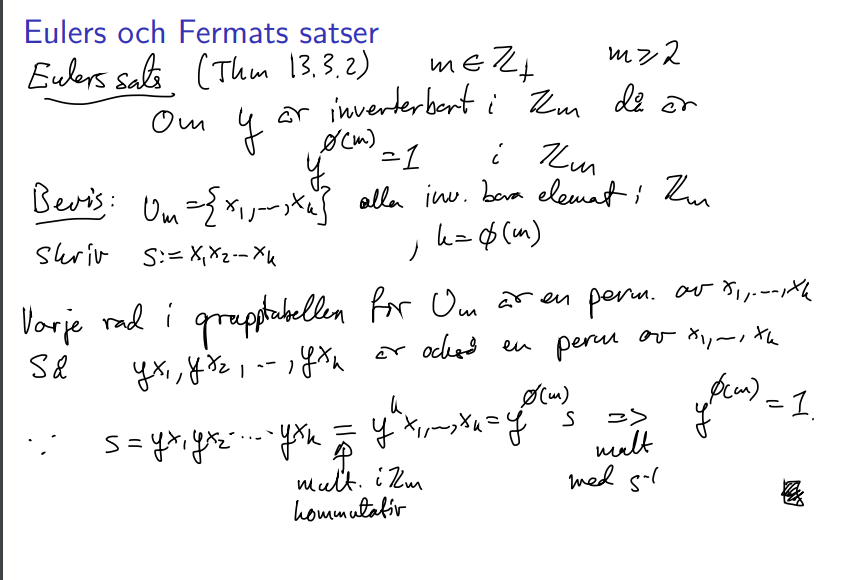 Eulers och Fermats satser
Eulers sats (Thm 13.3.2) m ∈ ℤ₊ m ≥ 2
Om y är inverterbart i ℤm då är
y^ø(m) = 1 i ℤm
Bevis: Um = {x₁, --, xk} alla inv. bara element i ℤm
, k = ø(m)
Skriv s := x₁x₂--xk
Varje rad i grupptabellen för Um är en perm. av x₁, ---, xk
Så yx₁, yx₂, --, yxk är också en perm av x₁, --, xk
∵ s = yx₁yx₂ ---- yxk = y^k x₁, --, xk = y^ø(m) s => y^ø(m) = 1.
⇑ mult
mult. i ℤm med s⁻¹
kommutativ